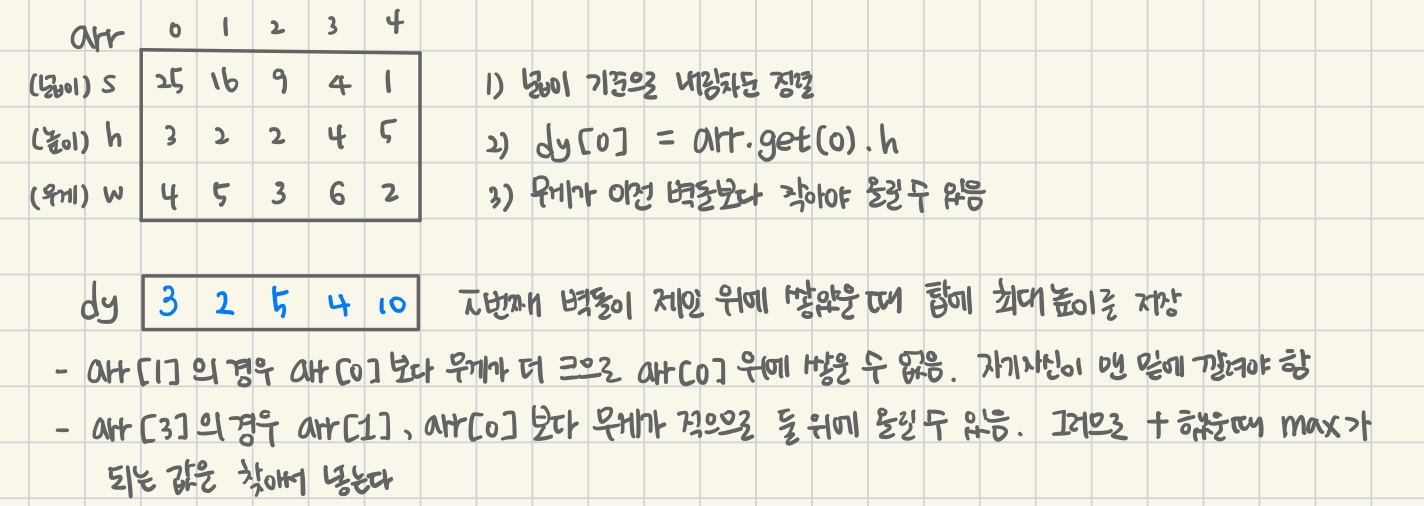 arr 0 1 2 3 4
(넓이) s 25 16 9 4 1
1) 넓이 기준으로 내림차순 정렬
(높이) h 3 2 2 4 5
2) dy[0] = arr.get(0).h
(무게) w 4 5 3 6 2
3) 무게가 이전 벽돌보다 작아야 올릴 수 있음
dy 3 2 5 4 10 i번째 벽돌이 제일 위에 쌓았을 때 탑에 최대 높이를 저장
- arr[1]의 경우 arr[0]보다 무게가 더 크으로 arr[0] 위에 쌓을 수 없음. 자기자신이 맨 밑에 깔려야 함
- arr[3]의 경우 arr[1], arr[0]보다 무게가 적으므로 둘 위에 올릴 수 있음. 그러므로 + 했을때 max가
되는 값을 찾아서 넣는다